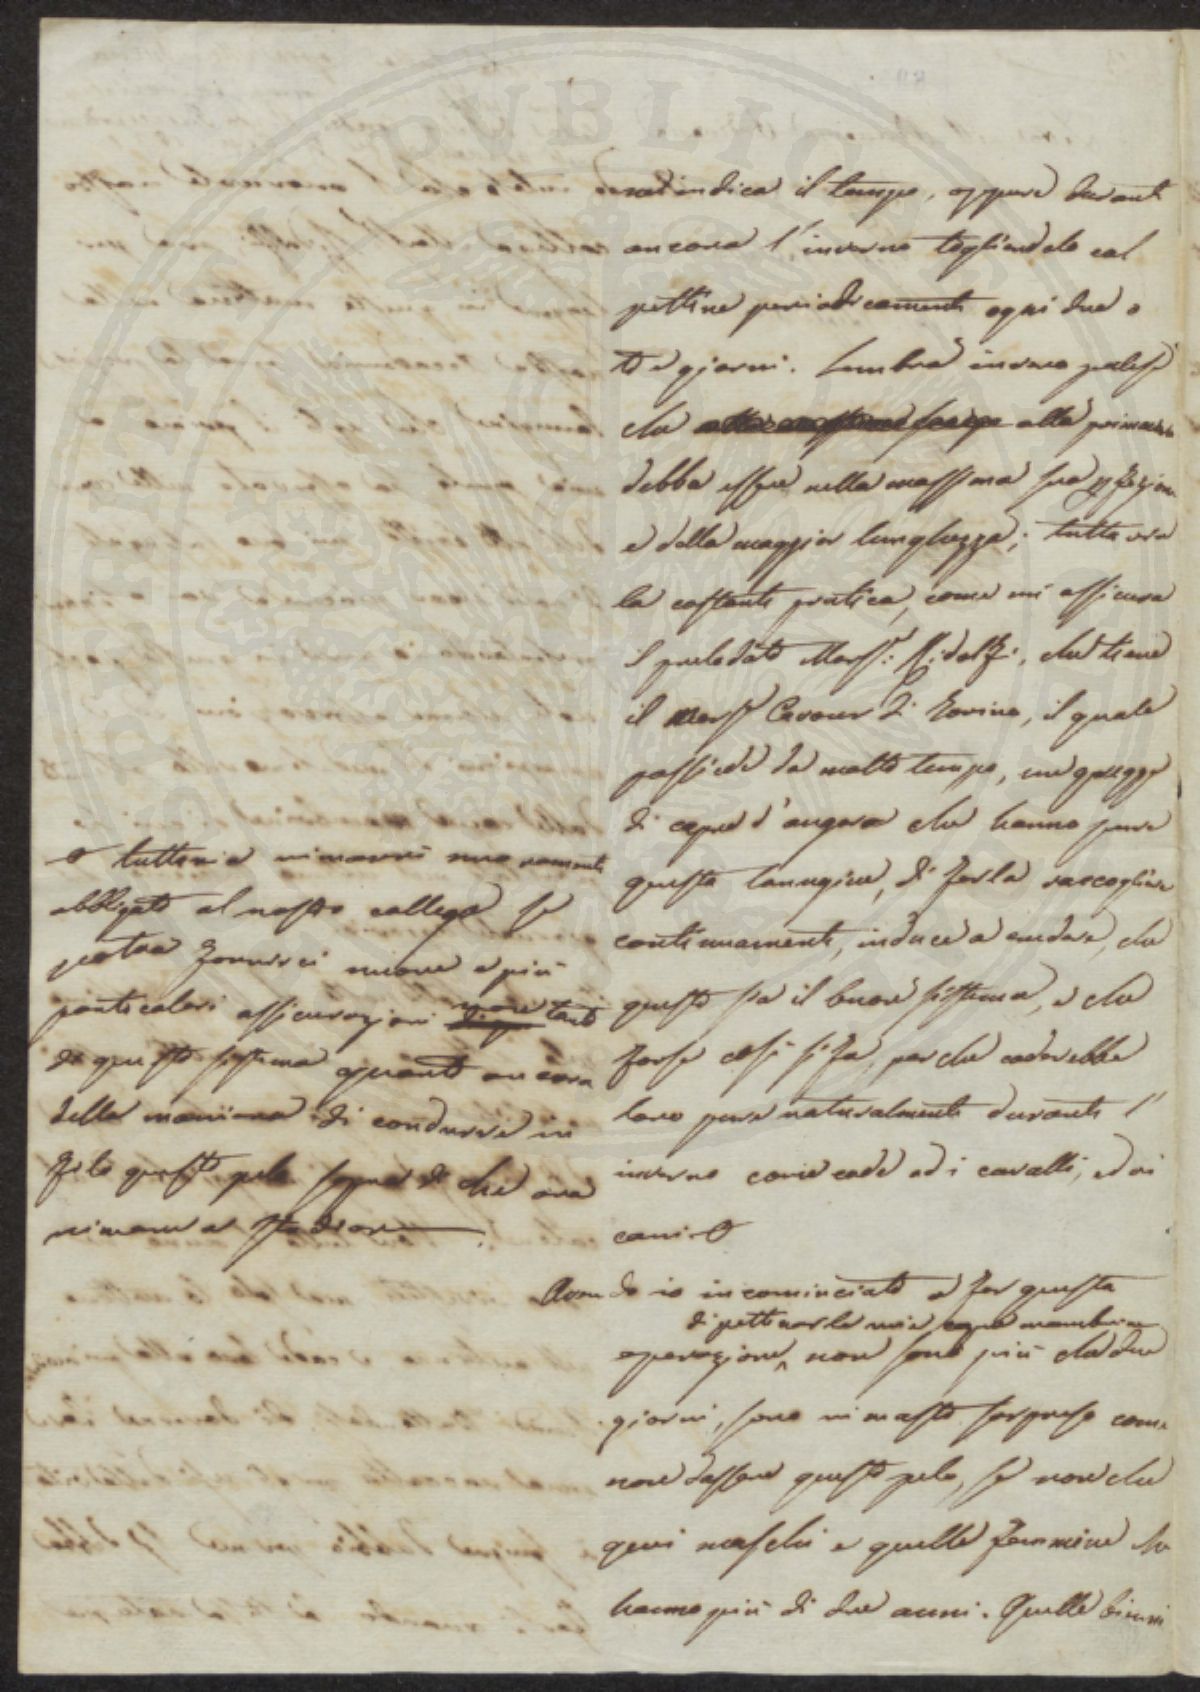 indica il tempo, oppure durante
ancora l'inverno togliendolo col
pettine periodicamente ogni due o
tre giorni. Sembra invero palese
che alla primavera
debba essere nella massima sua perfezione
e della maggior lunghezza; tutta via
la costante pratica, come mi assicura
il prelodato March: Ridolfi, che tiene
il March Cavour di Torino, il quale
possiede da molto tempo, una gregge
di capre d'angora che hanno pure
questa lanugine, di farla raccogliere
continuamente, induce a credere, che
questo sia il buon sistema, e che
forse così si fa, perche caderebbe
loro pure naturalmente durante l'
inverno come cade ad i cavalli, ed ai
cani
tuttavia rimarrei veramente
obbligato al nostro collega se
potra fornirci nuove e più
particolari assicurazioni non tanto
di questo sistema quanto ancora
della maniera di condurre in
filo questo pelo sopra di che ora
rimane a studiare.
Avendo io incominciato a far questa
di pettinar le mie capre
operazione, non sono più che due
giorni, sono rimasto sorpreso come
non dassero questo pelo, se non che
quei maschi e quelle femmine che
hanno più di due anni. Quelle
PUBLICAE